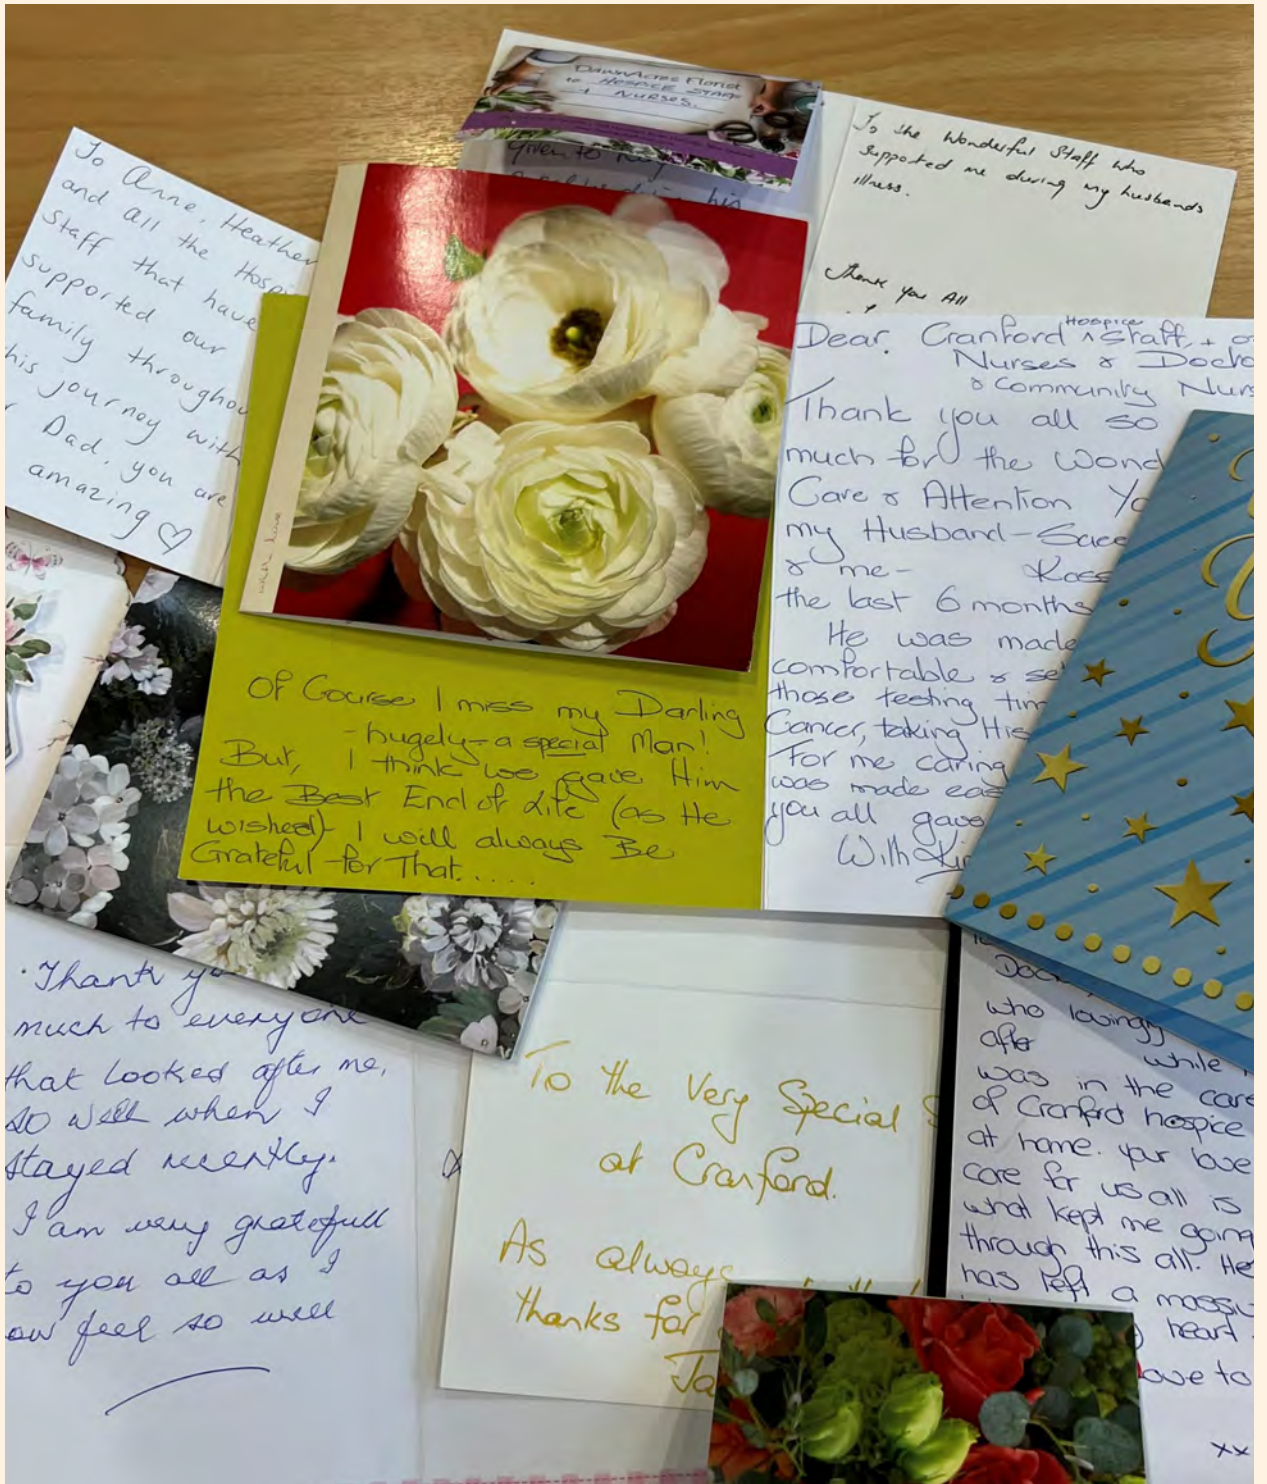 DawnAcres Florist
to HOSPICE STAFF
+ NURSES.
given to my
his
To the Wonderful Staff who
supported me during my husbands
illness.
Thank you All
To Anne, Heather
and all the Hospi
staff that have
supported our
family throughou
his journey with
Dad, you are
amazing ♡
Dear Cranford Hospice staff, +
Nurses & Docto
& Community Nurs
Thank you all so
much for the Wond
Care & Attention Yo
my Husband-
& me-
the last 6 months
He was made
comfortable & se
those testing tim
Cancer, taking His
For me caring
was made eas
you all gave
With
Of Course I miss my Darling
-hugely-a special Man!
But, I think we gave Him
the Best End of Life (as He
wished)- I will always Be
Grateful for That.....
Thank yo
much to everyone
that looked after me,
so well when I
stayed recently.
I am very gratefull
to you all as I
ow feel so well
To the Very Special S
at Cranford.
As always
thanks for
Ja
Doc
who lovingly
after while
was in the care
of Cranford hospice
at home. your love
care for us all is
what kept me going
through this all. He
has left a massiv
heart.
ove to
xx